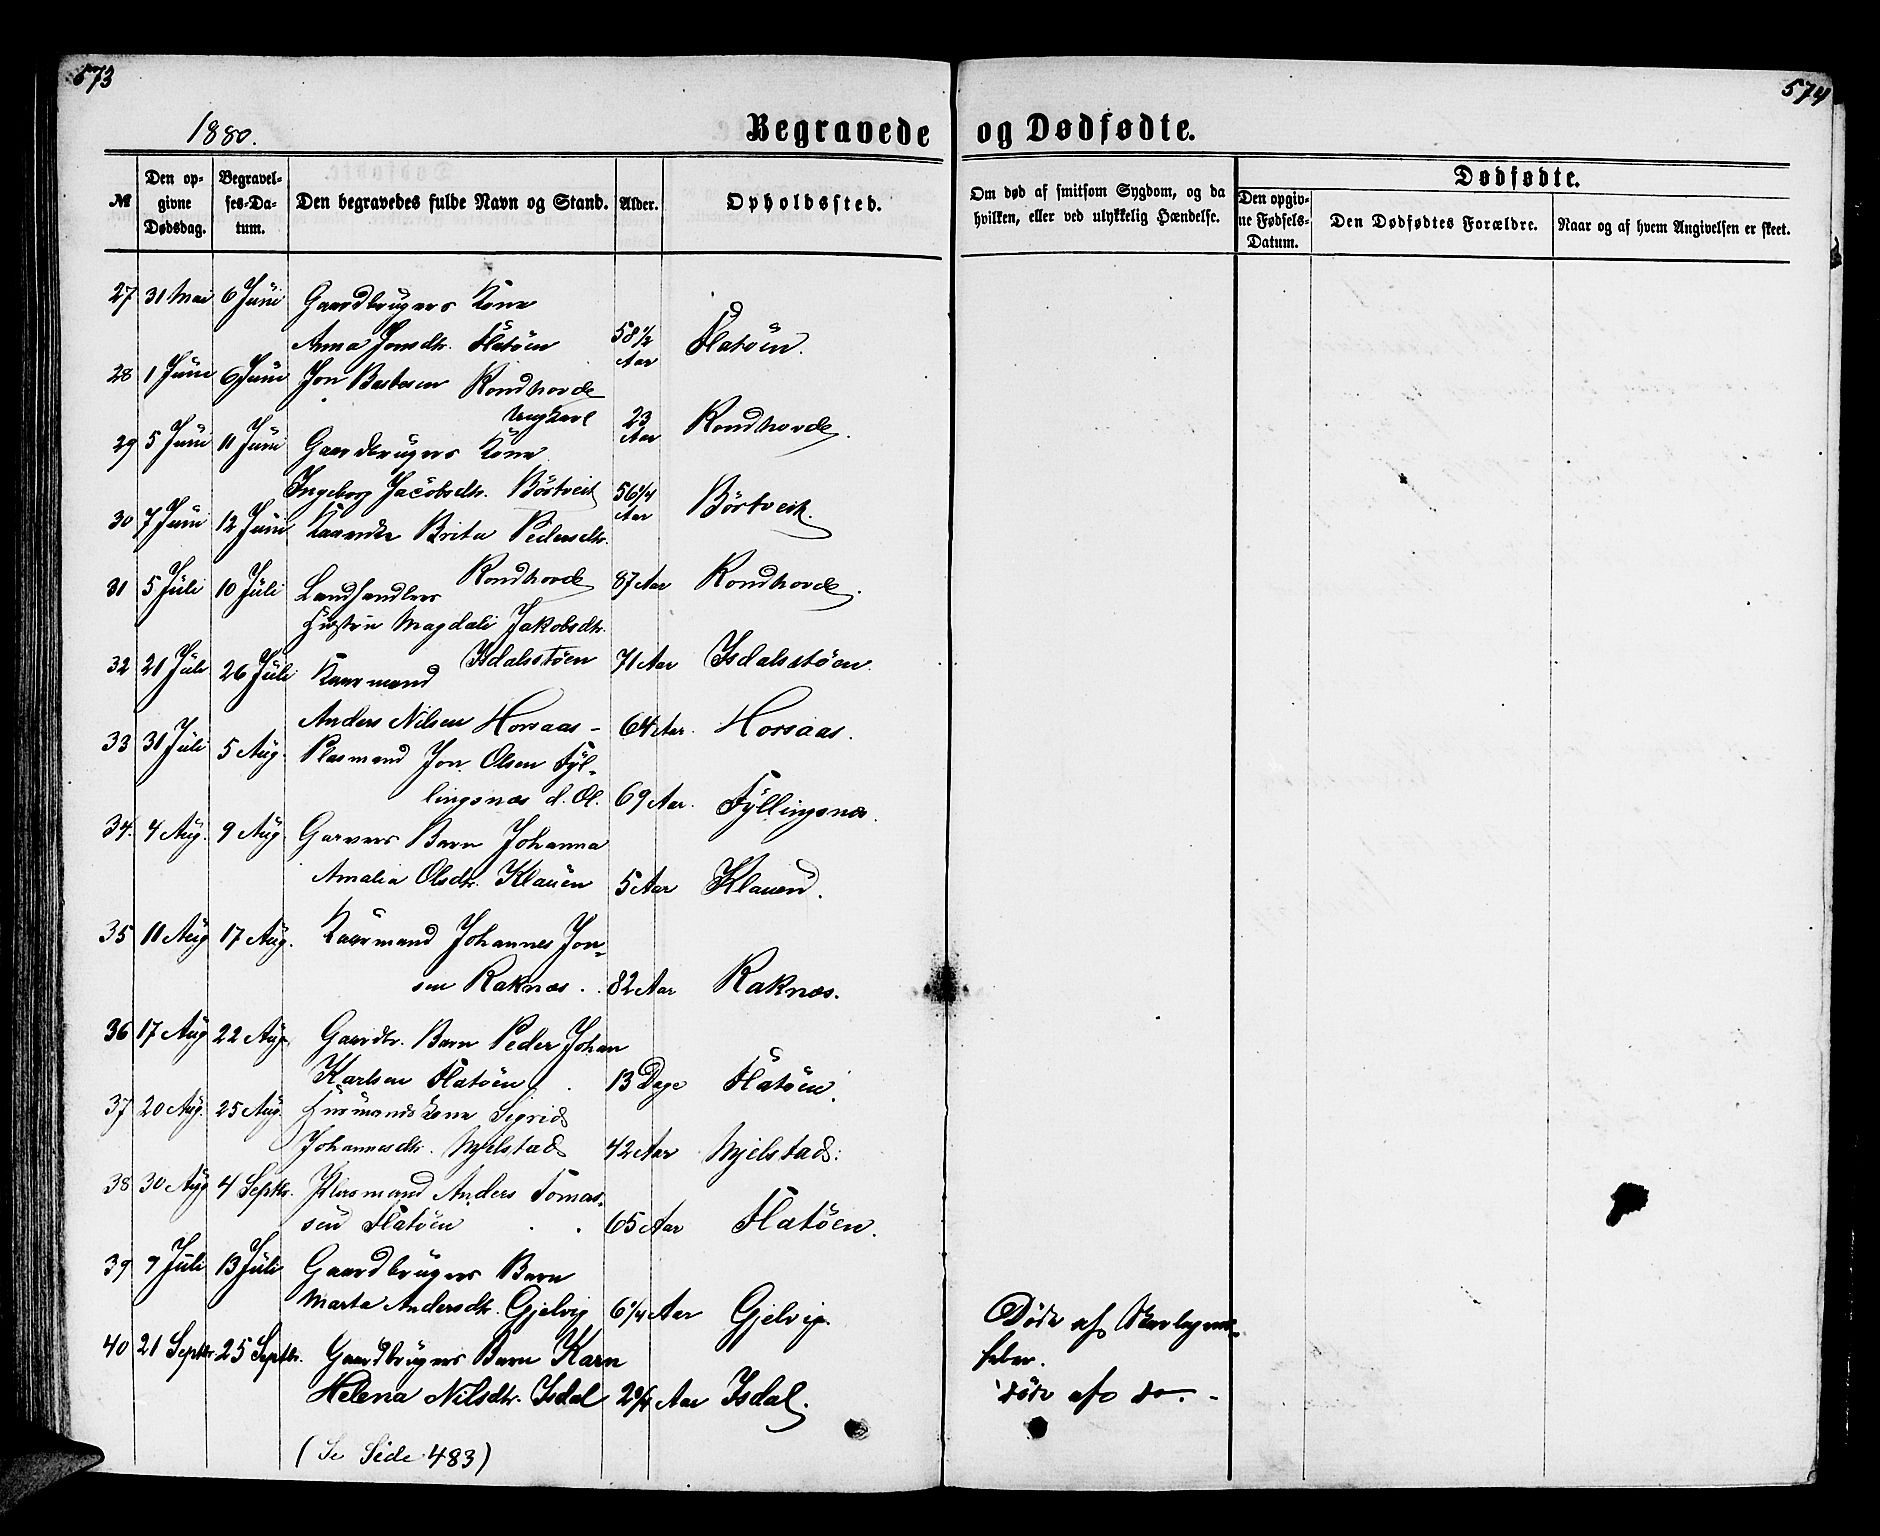 573
574
1880.
Begravede og Dødfødte.
№
Den opgivne Dødsdag.
Begravelses-Datum.
Den begravedes fulde Navn og Stand.
Alder.
Opholdssted.
Om død af smitsom Sygdom, og da hvilken, eller ved ulykkelig Hændelse.
Dødfødte.
Den opgivne Fødsels-Datum.
Den Dødfødtes Forældre.
Naar og af hvem Angivelsen er skeet.
27 31 Mai 6 Juni Gaardbrugers Kone
Anna Jonsdtr. Flatöen 58 1/2 Aar Flatöen.
28 1 Juni 6 Juni Jon Rondhovde
Ungkarl 23 Aar Rondhovde.
29 5 Juni 11 Juni Gaardbrugers Kone
Ingeborg Jacobsdtr. Börtveit 56 1/4 Aar Börtveit.
30 7 Juni 12 Juni Kaarenke Brita Pedersdtr.
Rondhovde 87 Aar Rondhovde.
31 5 Juli 10 Juli Landhandlers
Hustru Magdali Jakobsdtr.
Isdalsstöen 71 Aar Isdalsstöen.
32 21 Juli 26 Juli Kaarmand
Anders Nilsen Horsaas - 64 Aar. Horsaas.
33 31 Juli 5 Aug. Plasmand Jon Olsen Fyl-
lingsnæs d. Æl. 69 Aar. Fyllingsnæs.
34. 4 Aug. 9 Aug. Garvers Barn Johanna
Amalia Olsdtr. Klauen 5 Aar Klauen.
35 11 Aug 17 Aug. Kaarmand Johannes Jon-
sen Raknæs. 82 Aar Raknæs.
36 17 Aug 22 Aug. Gaardbr. Barn Peder Johan
Karlsen Flatöen. 13 Dage Flatöen.
37 20 Aug. 25 Aug. Husmands Kone Sigrid
Johannesdtr. Mjelstad 42 Aar Mjelstad.
38 30 Aug 4 Septbr. Plasmand Anders Tomas-
sen Flatöen 65 Aar Flatöen.
39 9 Juli 13 Juli Gaardbrugers Barn
Marta Andersdtr. Gjelvig 6 1/4 Aar Gjelvig. Döde af Skarlagens-
feber.
40 21 Septbr. 25 Septbr. Gaardbrugers Barn Karn
Helena Nilsdtr. Isdal 2 3/4 Aar Isdal. döde af do. -
(Se Side 483)